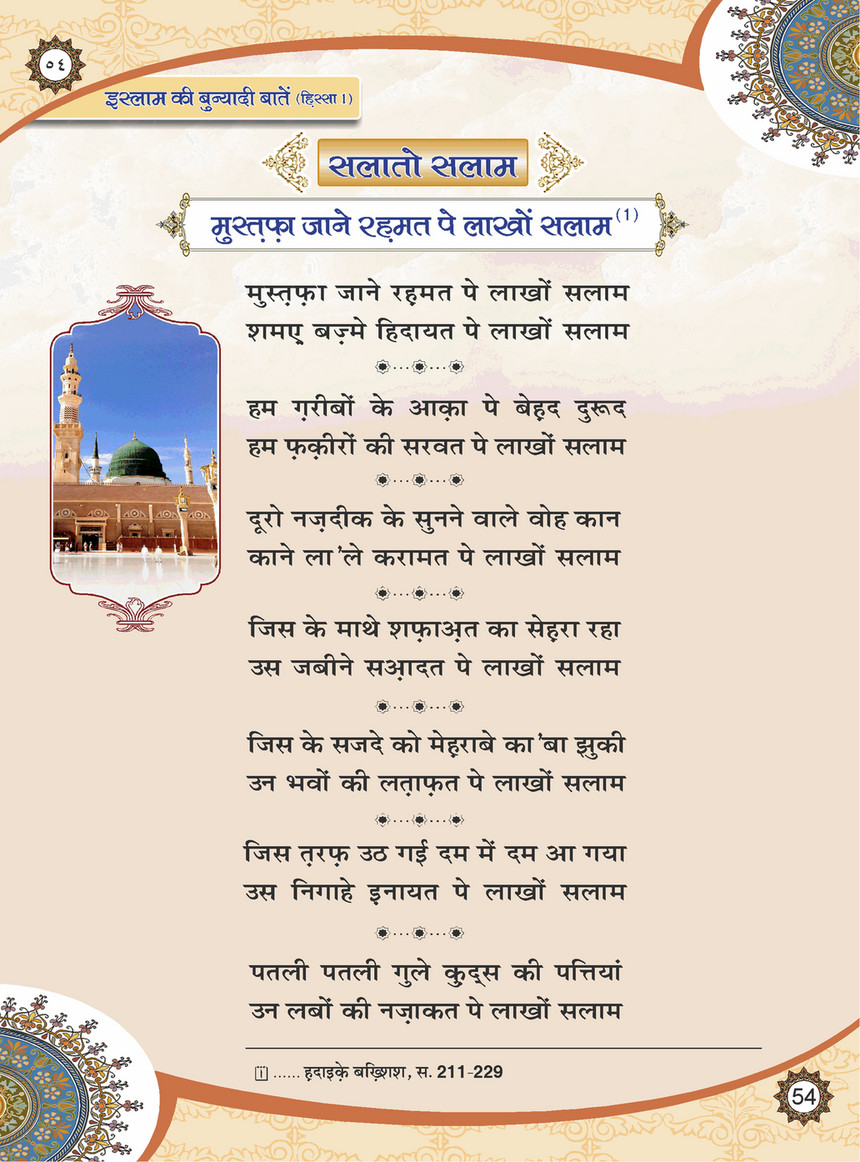 ٥٤
इस्लाम की बुन्यादी बातें (हि़स्सा 1)
सलातो सलाम
मुस्त़फ़ा जाने रह़मत पे लाखों सलाम (1)
मुस्त़फ़ा जाने रह़मत पे लाखों सलाम
शमए़ बज़्मे हिदायत पे लाखों सलाम
हम ग़रीबों के आक़ा पे बेह़द दुरूद
हम फ़क़ीरों की सरवत पे लाखों सलाम
दूरो नज़दीक के सुनने वाले वोह कान
काने ला'ले करामत पे लाखों सलाम
जिस के माथे शफ़ाअ़त का सेहरा रहा
उस जबीने सआ़दत पे लाखों सलाम
जिस के सजदे को मेह़राबे का'बा झुकी
उन भवों की लत़ाफ़त पे लाखों सलाम
जिस त़रफ़ उठ गई दम में दम आ गया
उस निगाहे इ़नायत पे लाखों सलाम
पतली पतली गुले क़ुद्स की पत्तियां
उन लबों की नज़ाकत पे लाखों सलाम
1 ...... ह़दाइक़े बख़्शिश, स. 211-229
54